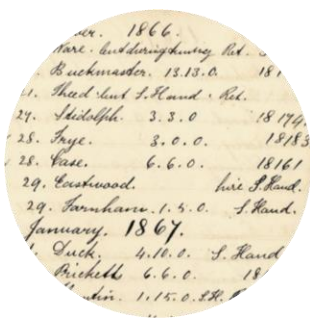 ver. 1866.
Ware. lent during honey Ret.
Buckmaster. 13.13.0. 181
21. Theed lent S. Hand. Ret.
27. Stidolph. 3.3.0 18179.
28. Frye. 3.0.0. 18183
28. Case. 6.6.0. 18161
29. Eastwood. hire S. Hand.
29. Farnham. 1.5.0. S. Hand.
January. 1867.
Duck. 4.10.0. S. Hand
Brickett 6.6.0. 18
1.15.0. S.H.